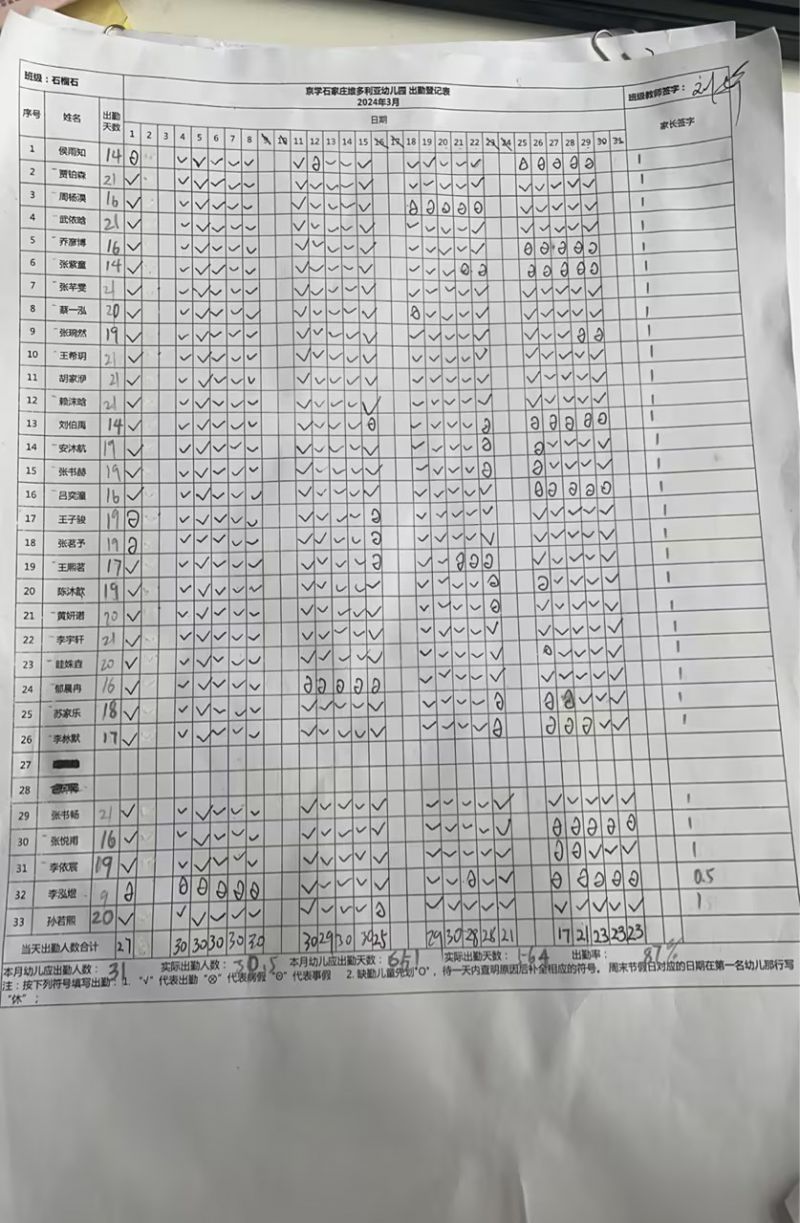 班级：石榴石
京学石家庄维多利亚幼儿园 出勤登记表
2024年3月
班级教师签字：
序号 姓名 出勤天数 日期 家长签字
1 2 3 4 5 6 7 8 9 10 11 12 13 14 15 16 17 18 19 20 21 22 23 24 25 26 27 28 29 30 31
1 侯雨知 14
2 贾铂森 21
3 周杨淏 16
4 武依晗 21
5 乔彦博 16
6 张紫童 14
7 张芊雯 21
8 蔡一泓 20
9 张琬然 19
10 王希玥 21
11 胡家洢 21
12 赖沫晗 21
13 刘伯禹 14
14 安沐航 19
15 张书赫 19
16 吕奕潼 16
17 王子骏 19
18 张茗予 19
19 王熙茗 17
20 陈沐歆 19
21 黄妍诺 20
22 李宇轩 21
23 20
24 郁晨冉 16
25 苏家乐 18
26 李林默 17
27
28
29 张书畅 21
30 张悦甫 16
31 李依宸 19
32 李泓煜 9 0.5
33 孙若熙 20
当天出勤人数合计 27 30 30 30 30 30 30 29 30 30 25 29 30 28 28 21 17 21 23 23 23
本月幼儿应出勤人数：31 实际出勤人数：30.5 本月幼儿应出勤天数：651 实际出勤天数：564 出勤率：87%
注：按下列符号填写出勤：1. "√" 代表出勤 "⊗" 代表病假 "Θ" 代表事假 2. 缺勤儿童先划"O"，待一天内查明原因后补全相应的符号。 周末节假日对应的日期在第一名幼儿那行写
"休"；